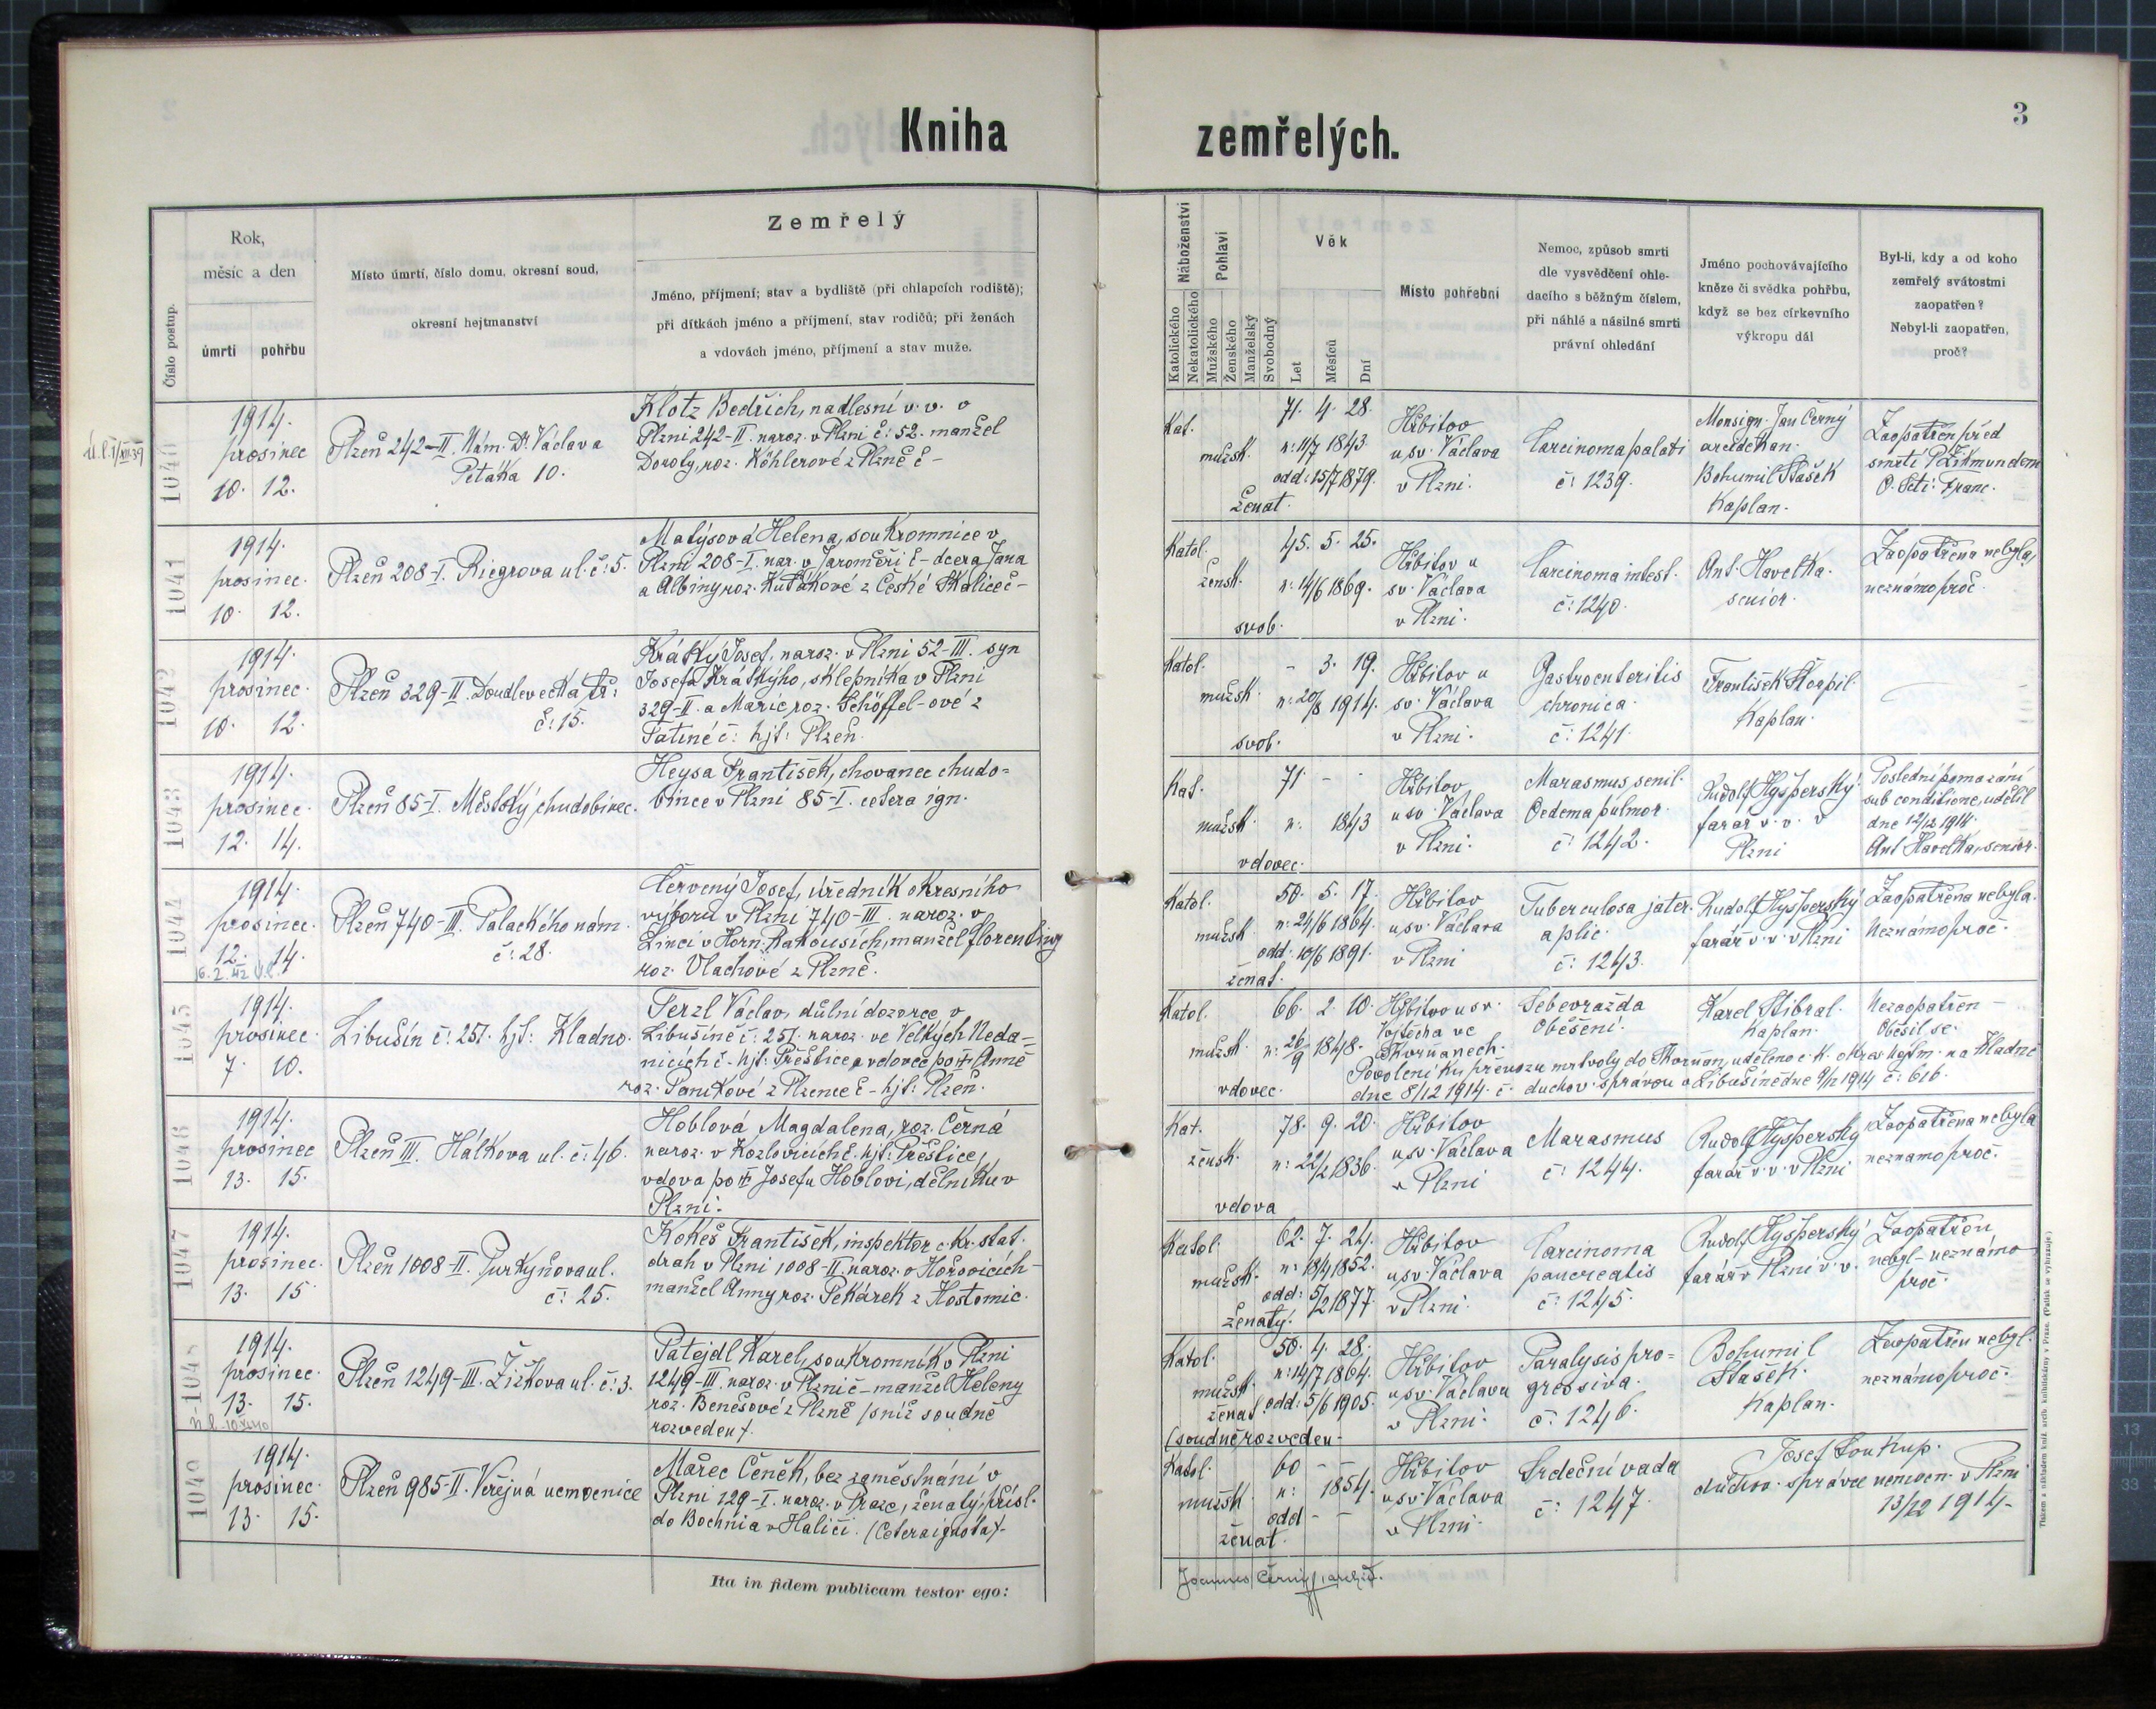 Kniha zemřelých.
3
Číslo postup.
Rok,
měsíc a den
úmrtí
pohřbu
Místo úmrtí, číslo domu, okresní soud,
okresní hejtmanství
Zemřelý
Jméno, příjmení; stav a bydliště (při chlapcích rodiště);
při dítkách jméno a příjmení, stav rodičů; při ženách
a vdovách jméno, příjmení a stav muže.
Náboženství
Katolického
Nekatolického
Pohlaví
Mužského
Ženského
Manželský
Svobodný
Věk
Let
Měsíců
Dní
Místo pohřební
Nemoc, způsob smrti
dle vysvědčení ohle-
dacího s běžným číslem,
při náhlé a násilné smrti
právní ohledání
Jméno pochovávajícího
kněze či svědka pohřbu,
když se bez církevního
výkropu dál
Byl-li, kdy a od koho
zemřelý svátostmi
zaopatřen?
Nebyl-li zaopatřen,
proč?
1040
1914.
prosinec
10. 12.
Plzeň 242-II. Nám. Dr. Václava
Petáka 10.
Klotz Bedřich, nadlesní v. v. v
Plzni 242-II. naroz. v Plzni č: 52. manžel
Doroty, roz. Köhlerové z Plzně č -
Kat.
mužsk.
ženat.
71. 4. 28.
n: 11/7 1843
odd: 15/7 1879.
Hřbitov
u sv. Václava
v Plzni.
Carcinoma palati
č: 1239.
Monsign. Jan Černý
arciděkan.
Bohumil Stašek
Kaplan.
Zaopatřen před
smrtí P. Zikmundem
O. Scti: Franc.
1041
1914.
prosinec.
10. 12.
Plzeň 208-I. Riegrova ul. č: 5.
Matýsová Helena, soukromnice v
Plzni 208-I. nar. v Jaroměři č - dcera Jana
a Albiny roz. Kuťákové z České Skalice č -
Katol.
žensk.
svob.
45. 5. 25.
n: 14/6 1869.
Hřbitov u
sv. Václava
v Plzni.
Carcinoma intest.
č: 1240.
Ant. Havelka.
senior.
Zaopatřena nebyla,
neznámo proč.
1042
1914.
prosinec.
10. 12.
Plzeň 329-II. Doudlevecká tř:
č: 15.
Krátký Josef, naroz. v Plzni 52-III. syn
Josefa Krátkýho, sklepníka v Plzni
329-II. a Marie roz. Schöffel-ové z
Tatiné č: hjt: Plzeň.
Katol.
mužsk.
svob.
- 3. 19.
n: 20/8 1914.
Hřbitov u
sv. Václava
v Plzni.
Gastroenteritis
chronica.
č: 1241.
František Škorpil.
Kaplan.
1043
1914.
prosinec.
12. 14.
Plzeň 85-I. Městský chudobinec.
Heysa František, chovanec chudo=
bince v Plzni 85-I. cetera ign.
Kat.
mužsk.
vdovec.
71. - -
n: 1843
Hřbitov
u sv. Václava
v Plzni.
Marasmus senil.
Oedema pulmor.
č: 1242.
Rudolf Hyšperský
farář v. v. v
Plzni
Poslední pomazání
sub conditione, udělil
dne 12/12 1914.
Ant. Havelka, senior.
1044
1914.
prosinec.
12. 14.
Plzeň 740-III. Palackého nám.
č: 28.
Červený Josef, úředník okresního
výboru v Plzni 740-III. naroz. v
Linci v Horn. Rakousích, manžel Florentiny
roz. Vlachové z Plzně.
Katol.
mužsk
ženat.
50. 5. 17.
n: 24/6 1864.
odd: 10/6 1891.
Hřbitov
u sv. Václava
v Plzni
Tuberculosa jater.
a plic.
č: 1243.
Rudolf Hyšperský
farář v. v. v Plzni
Zaopatřena nebyla.
Neznámo proč.
1045
1914.
prosinec.
7. 10.
Libušín č: 251. hjt: Kladno.
Terzl Václav, důlní dozorce v
Libušíně č: 251. naroz. ve Velkých Neda=
nicích č - hjt: Přeštice, vdovec po † Anně
roz. Paníkové z Plzence č - hjt: Plzeň.
Katol.
mužsk.
vdovec.
66. 2. 10.
n: 26/9 1848.
Hřbitov u sv.
Vojtěcha ve
Skvrňanech.
Sebevražda
Oběšení.
Karel Stibral.
Kaplan.
Nezaopatřen -
Oběsil se.
Povolení ku převozu mrtvoly do Skvrňan, uděleno c. k. okres. hejtm. na Kladně
dne 8/12 1914. č. duchov. správou v Libušíně dne 9/12 1914 č: 616.
1046
1914.
prosinec
13. 15.
Plzeň III. Hálkova ul. č: 46.
Hoblová Magdalena, roz. Černá
naroz. v Kozlovicích č. hjt: Přeštice,
vdova po † Josefu Hoblovi, dělníku v
Plzni.
Kat.
žensk.
vdova
78. 9. 20.
n: 22/2 1836.
Hřbitov
u sv. Václava
v Plzni
Marasmus
č: 1244.
Rudolf Hyšperský
farář v. v. v Plzni
Zaopatřena nebyla
neznámo proč.
1047
1914.
prosinec.
13. 15
Plzeň 1008-II. Purkyňova ul.
č: 25.
Kokeš František, inspektor c. kr. stat.
drah v Plzni 1008-II. naroz. v Hořovicích -
manžel Anny roz. Pekárek z Hostomic.
Katol.
mužsk.
ženatý.
62. 7. 24.
n: 18/4 1852.
odd: 5/2 1877.
Hřbitov
u sv. Václava
v Plzni.
Carcinoma
pancreatis
č: 1245.
Rudolf Hyšperský
farář v Plzni v. v.
Zaopatřen
nebyl - neznámo
proč.
1048
1914.
prosinec.
13. 15.
Plzeň 1249-III. Žižkova ul. č: 3.
Patejdl Karel, soukromník v Plzni
1249-III. naroz. v Plzni č - manžel Heleny
roz. Benešové z Plzně /s níž soudně
rozveden/.
Katol.
mužsk.
ženat.
(soudně rozveden -
50. 4. 28.
n: 14/7 1864.
odd: 5/6 1905.
Hřbitov
u sv. Václava
v Plzni.
Paralysis pro=
gressiva.
č: 1246.
Bohumil
Stašek.
Kaplan.
Zaopatřen nebyl.
neznámo proč.
1049
1914.
prosinec.
13. 15.
Plzeň 985-II. Veřejná nemocnice
Mařec Čeněk, bez zaměstnání v
Plzni 129-I. naroz. v Praze, ženatý, přísl.
do Bochnia v Haliči. /Cetera ignota/-
Katol.
mužsk.
ženat.
60 - -
n: 1854.
odd - -
Hřbitov
u sv. Václava
v Plzni
Srdeční vada
č: 1247.
Josef Soukup.
duchov. správce nemocn. v Plzni
13/12 1914 -
Ita in fidem publicam testor ego:
Joannes Černý, archid.